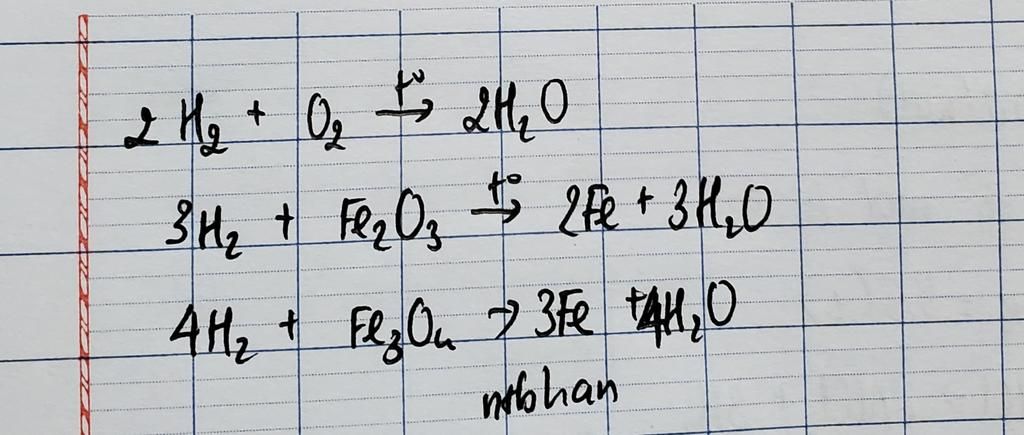 2 H₂ + O₂ →^{t°} 2H₂O
3H₂ + Fe₂O₃ →^{t°} 2Fe + 3H₂O
4H₂ + Fe₃O₄ → 3Fe + 4H₂O